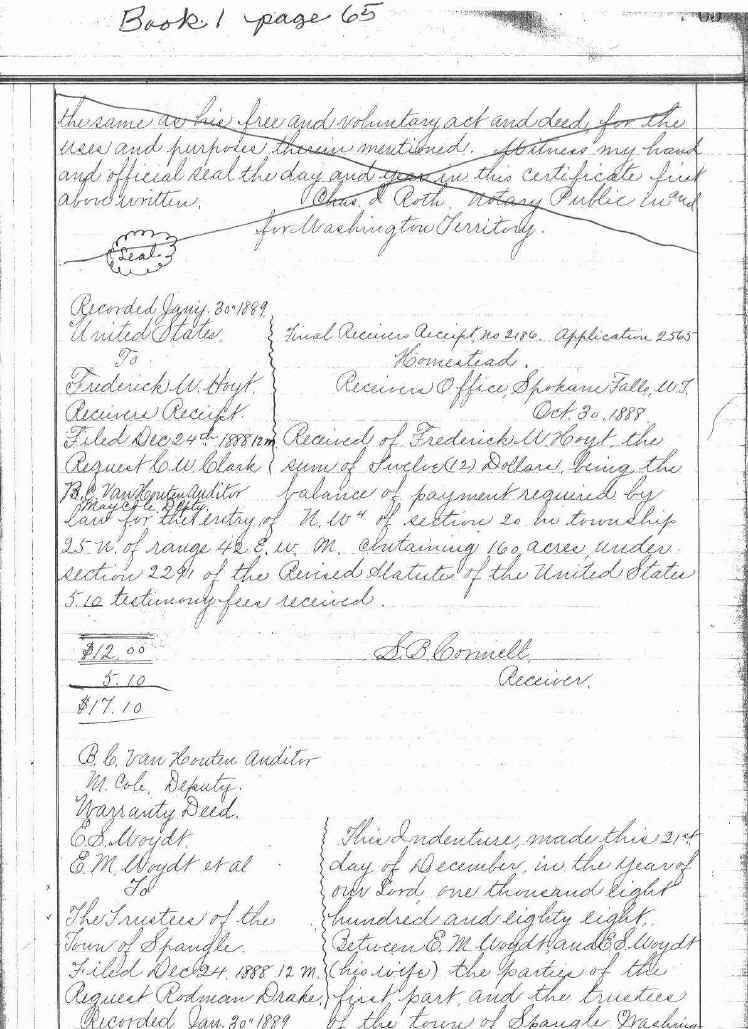 Book 1 page 65
65
the same as his free and voluntary act and deed, for the
uses and purposes therein mentioned. Witness my hand
and official seal the day and year in this certificate first
above written. Chas. I Roth. Notary Public in and
for Washington Territory.
Seal.
Recorded Jany. 30th 1889.
United States.
To
Frederick W. Hoyt.
Receivers Receipt.
Filed Dec 24th 1888 12 m
Request C. W. Clark
B. C. Van Houten Auditor
May Cole. Depty.
Final Receivers Receipt, No 2186. Application 2565
Homestead.
Receivers Office, Spokane Falls, W.T.
Oct. 30, 1888
Received of Frederick W. Hoyt the
sum of Twelve (12) Dollars, being the
balance of payment required by
law for the entry of N. W 4 of section 20 in township
25 N. of range 42 E. W. M. containing 160 acres, under
section 2291 of the Revised Statute of the United States
5.10 testimony fees received.
$12.00
5.10
$17.10
S. B Connell,
Receiver.
B. C. Van Houten Auditor
M. Cole, Deputy.
Warranty Deed.
E. S. Woydt.
E. M. Woydt et al
To
The Trustees of the
Town of Spangle.
Filed Dec 24. 1888 12 M.
Request Rodman Drake.
Recorded Jan. 30th 1889
This Indenture, made this 21st
day of December, in the year of
our Lord, one thousand eight
hundred and eighty eight.
Between E. M Woydt and E S. Woydt
(his wife) the parties of the
first part, and the trustees
of the town of Spangle, Washing